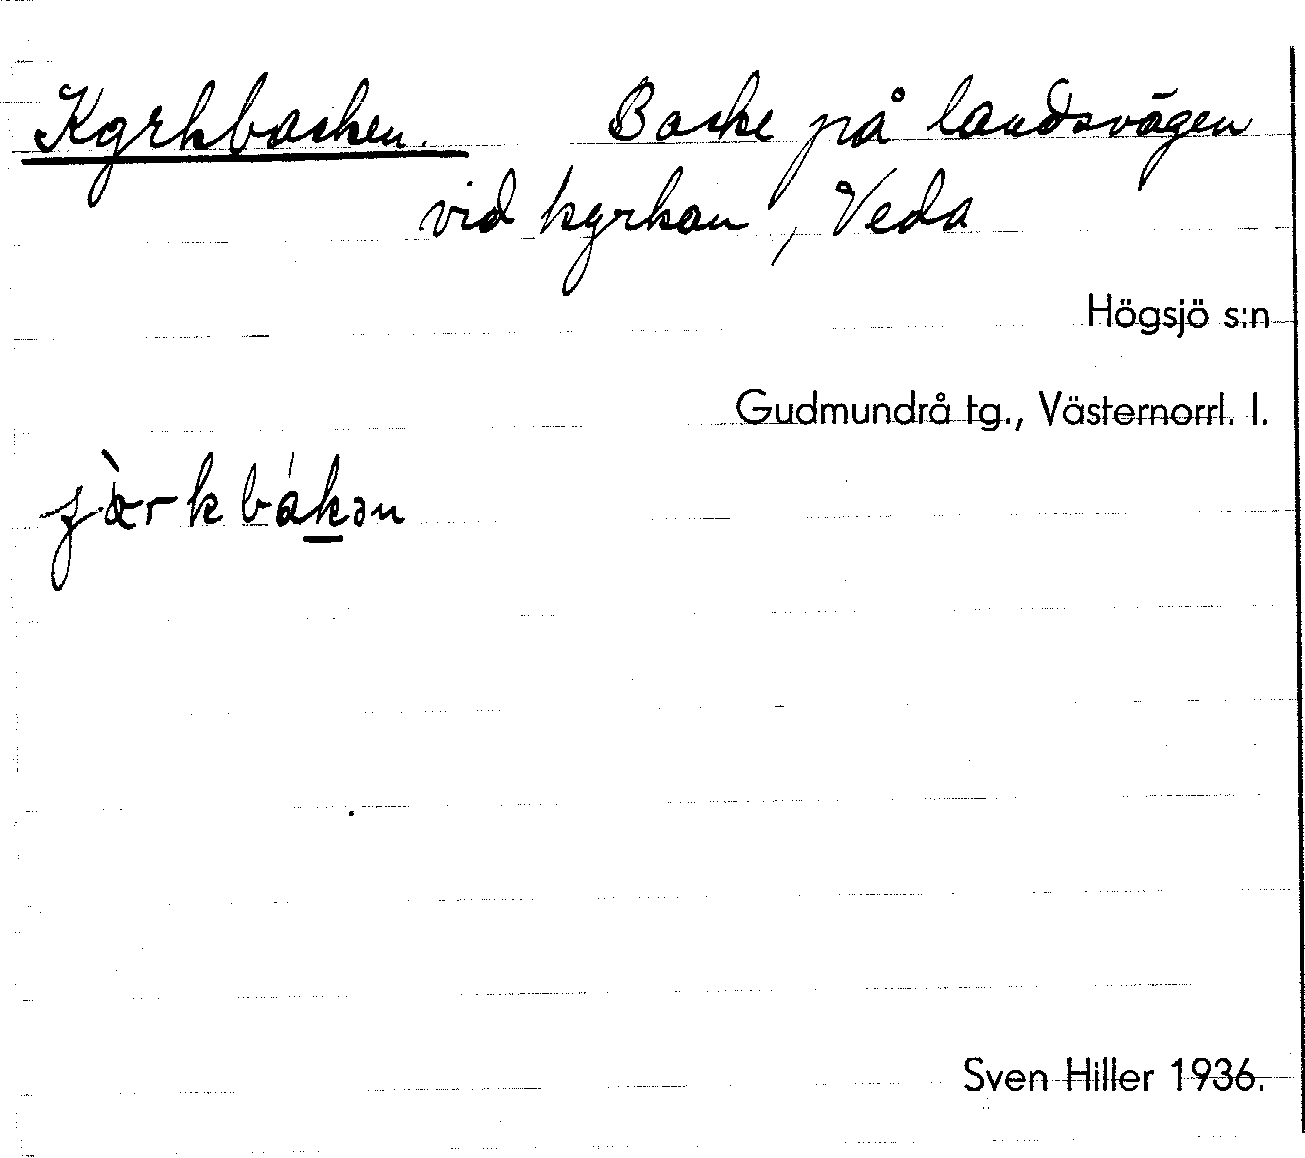 Kyrkbacken. Backe på landsvägen
vid kyrkan, Veda
Högsjö s:n
Gudmundrå tg., Västernorrl. l.
Sven Hiller 1936.